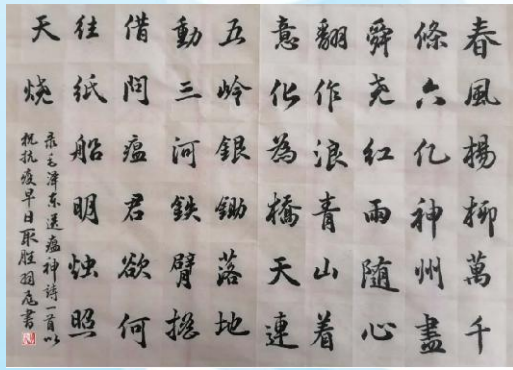 春風楊柳萬千
條六亿神州盡
舜尧红雨隨心
翻作浪青山着
意化為橋天連
五岭銀鋤落地
動三河鉄臂摇
借問瘟君欲何
往紙船明烛照
天烧
录毛泽东送瘟神詩一首以
祝抗疫早日取胜羽書